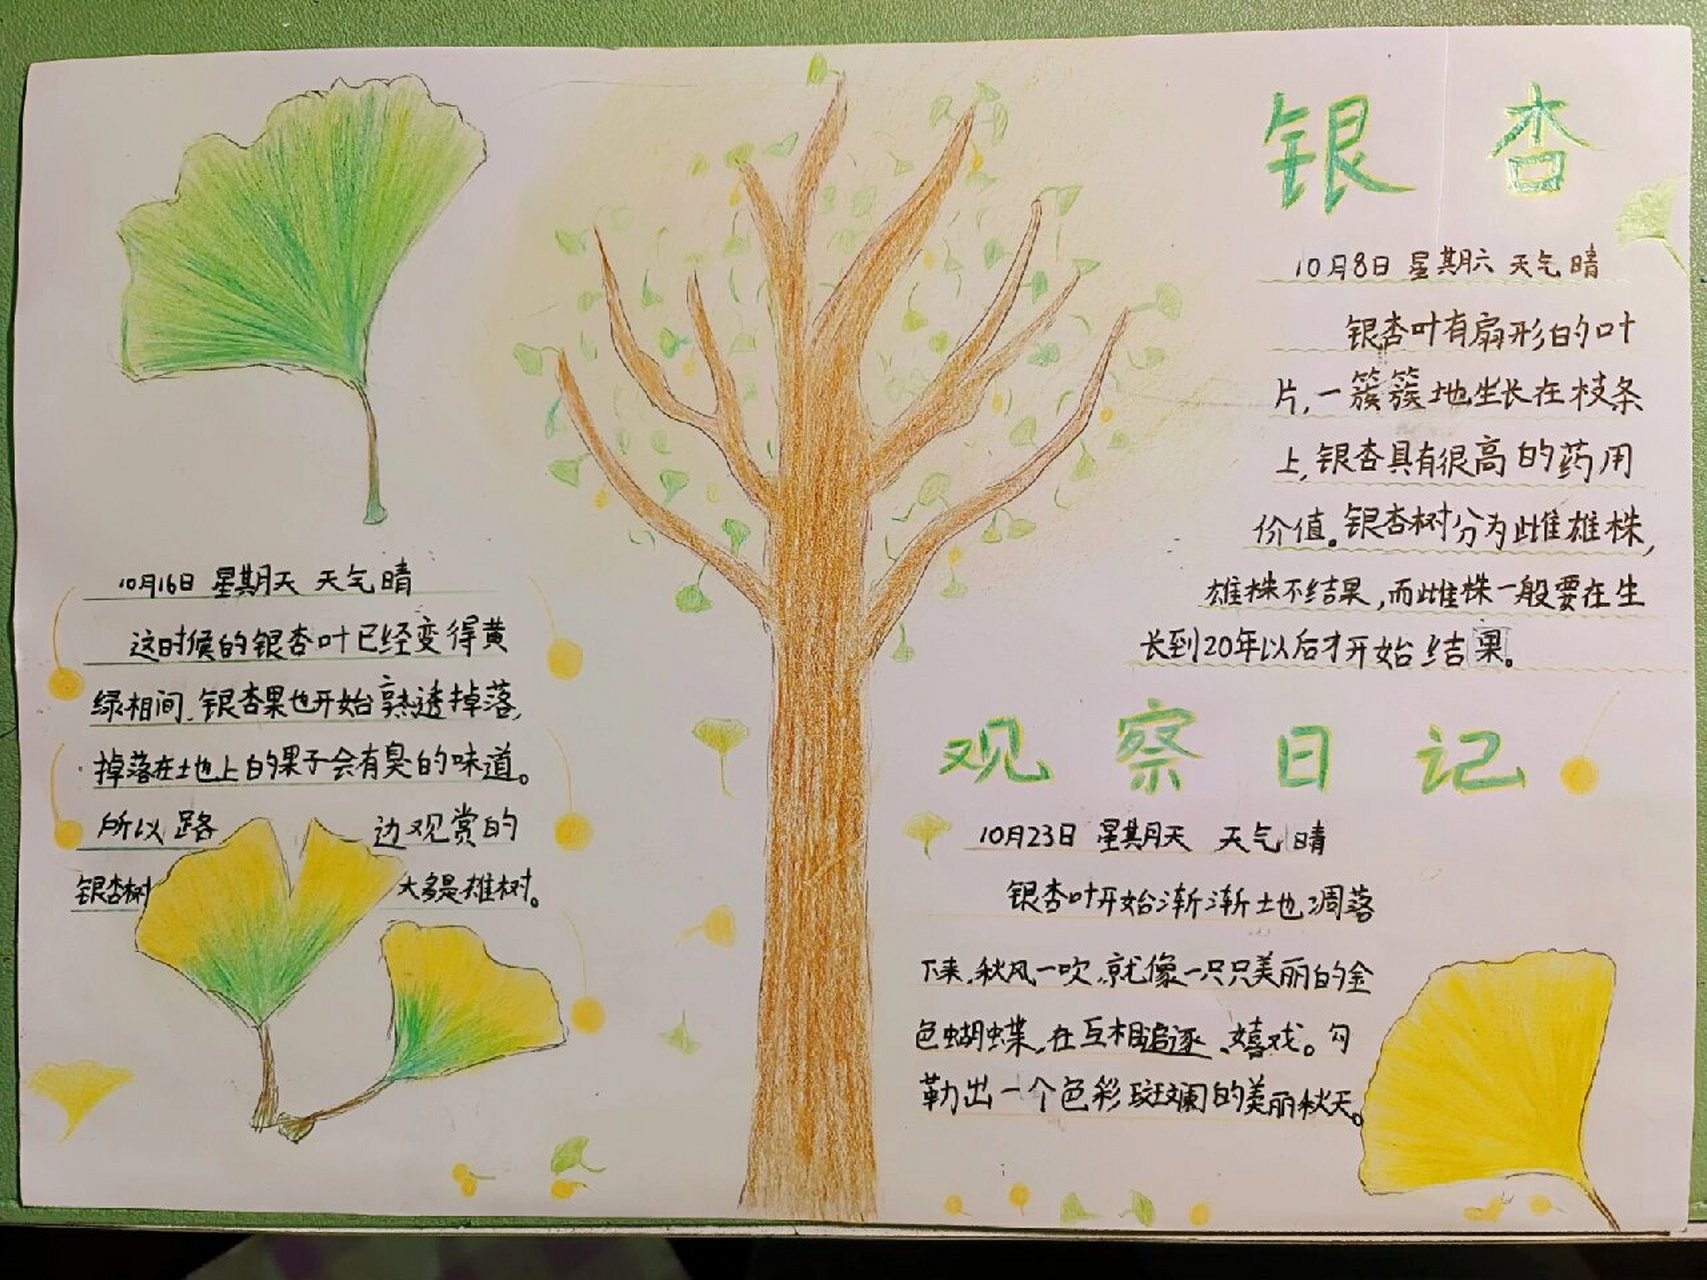 银杏
10月8日 星期六 天气晴
银杏叶有扇形的叶
片,一簇簇地生长在枝条
上,银杏具有很高的药用
价值。银杏树分为雌雄株,
雄株不结果,而雌株一般要在生
长到20年以后才开始结果。
观察日记
10月16日 星期天 天气晴
这时候的银杏叶已经变得黄
绿相间,银杏果也开始熟透掉落,
掉落在土地上的果子会有臭的味道。
所以路边观赏的
银杏树大多是雄树。
10月23日 星期天 天气晴
银杏叶开始渐渐土也凋落
下来,秋风一吹,就像一只只美丽的金
色蝴蝶,在互相追逐、嬉戏。勾
勒出一个色彩斑斓的美丽秋天。